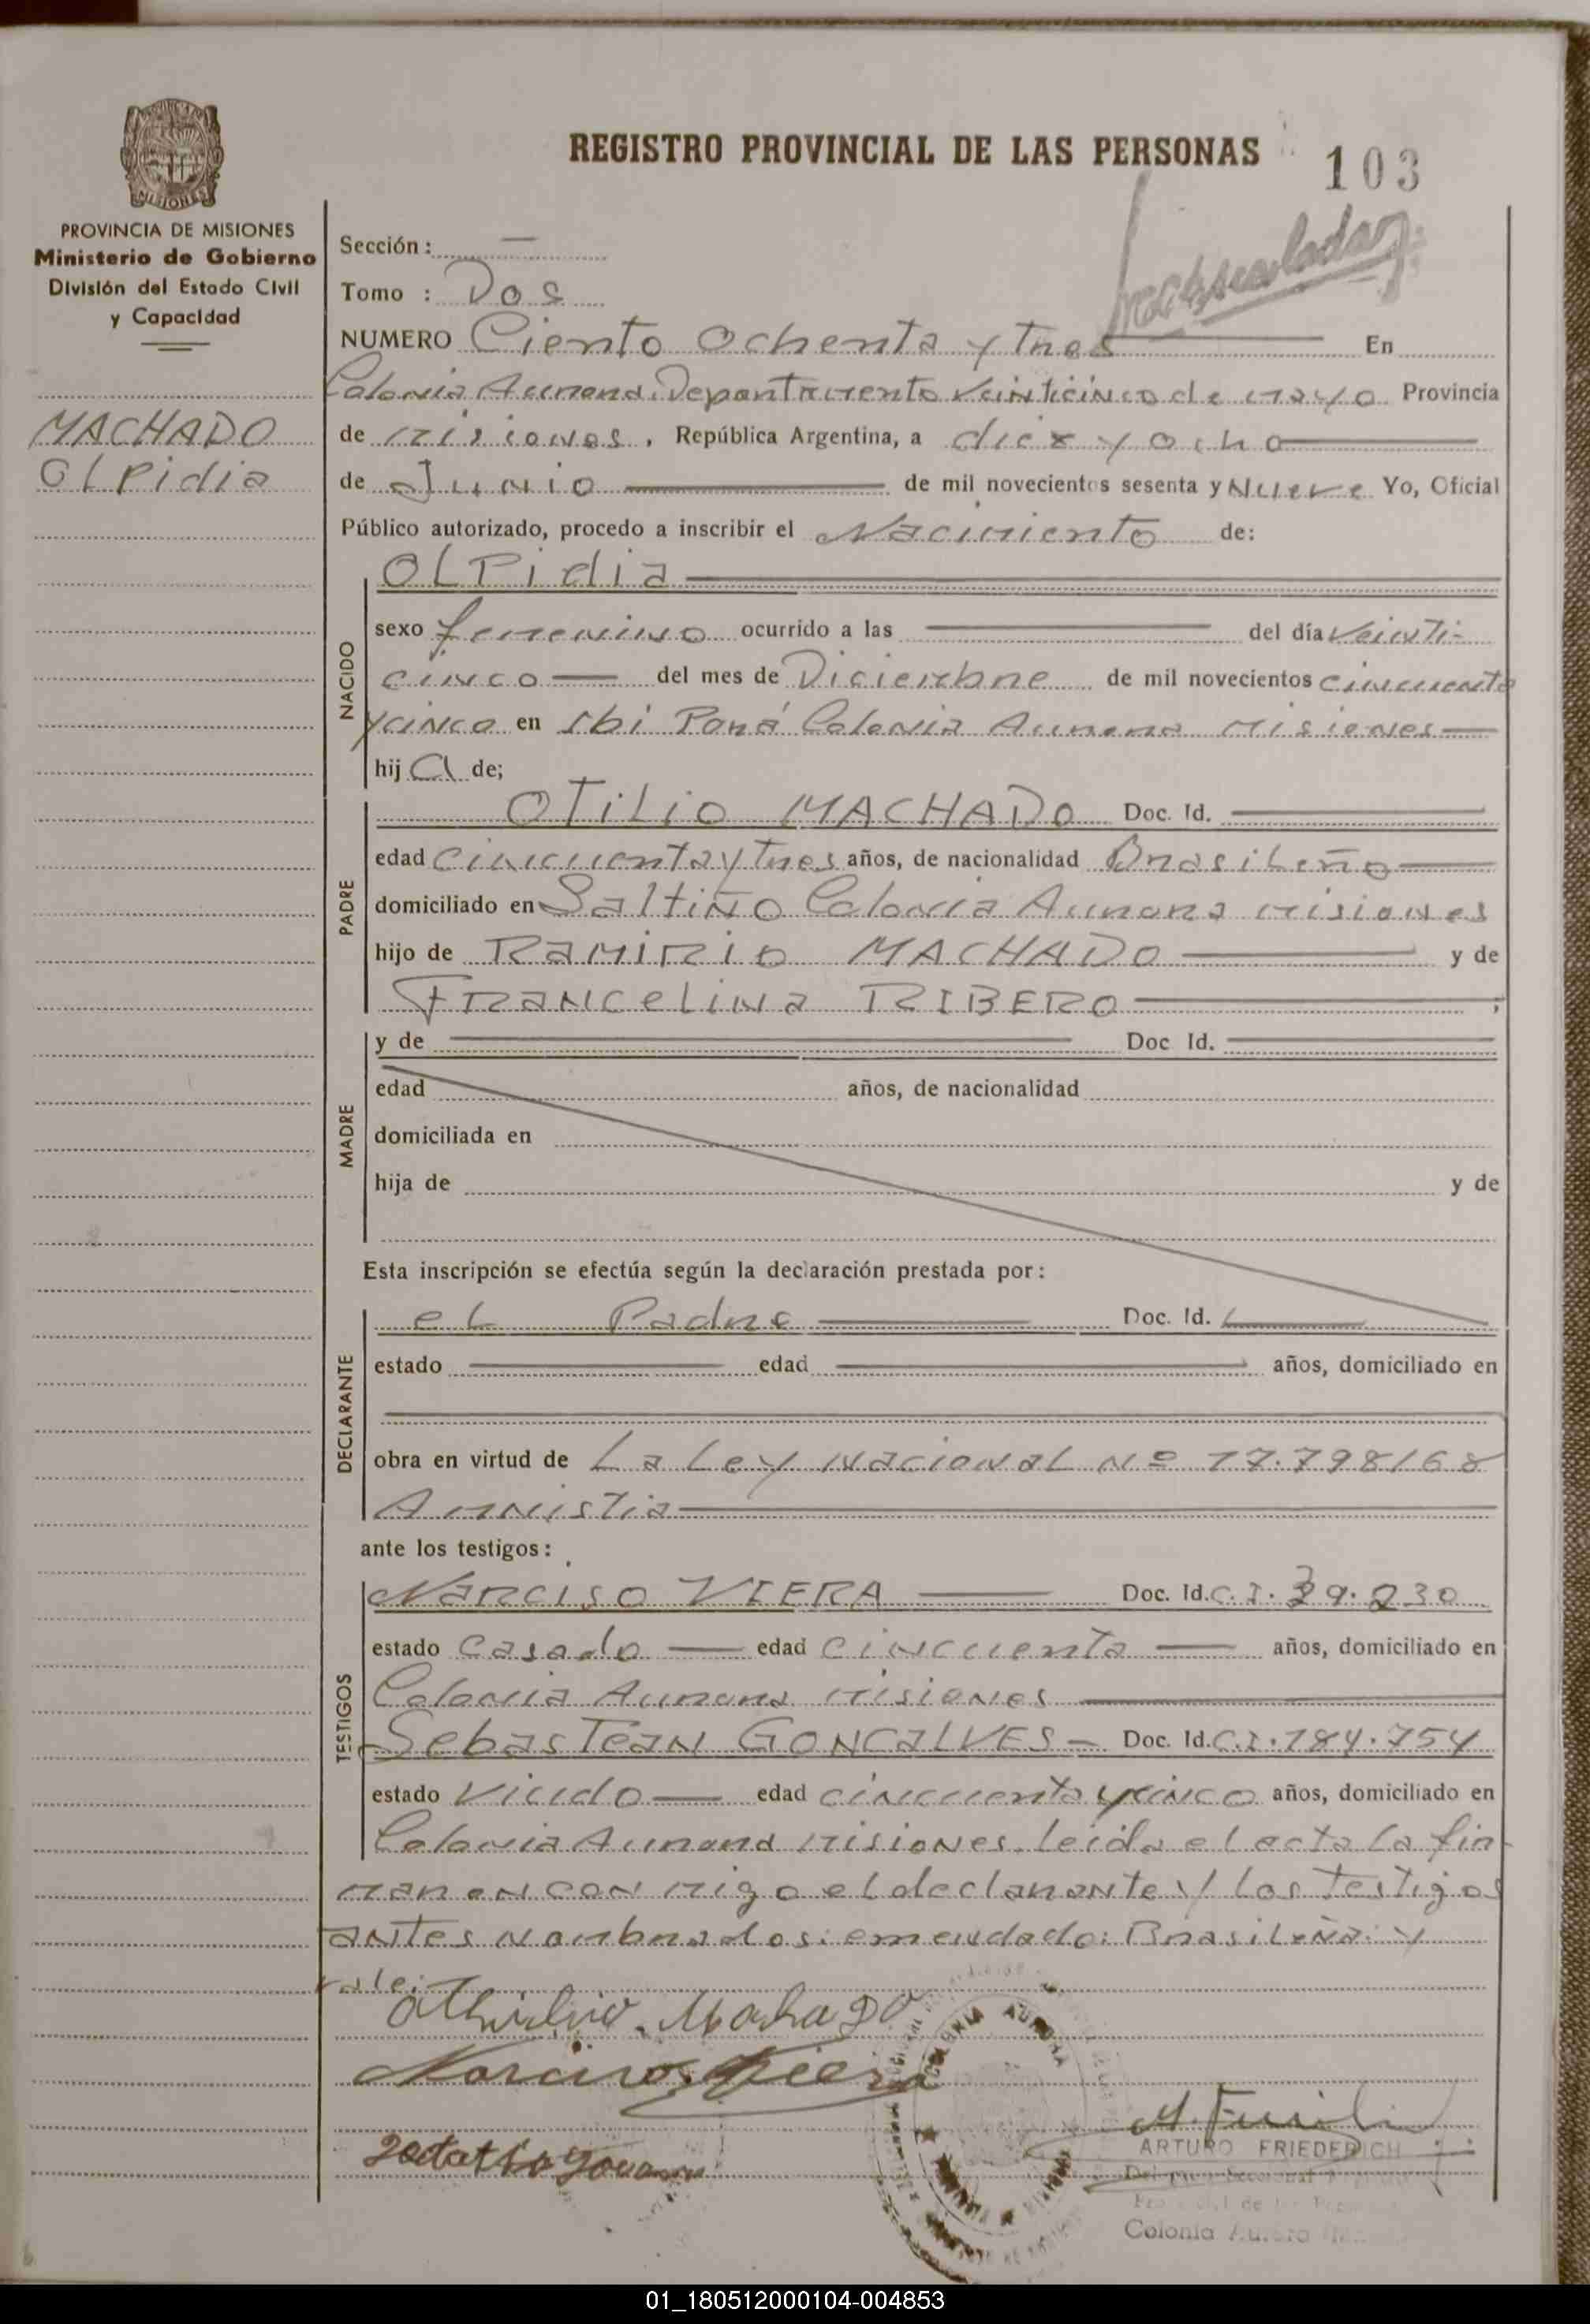 REGISTRO PROVINCIAL DE LAS PERSONAS
103
MISIONES
PROVINCIA DE MISIONES
Ministerio de Gobierno
División del Estado Civil
y Capacidad
MACHADO
OLPidia
Sección: —
Tomo : Dos
NUMERO Ciento Ochenta y Tres En
Colonia Aurora. Departamento Veinticinco de mayo Provincia
de Misiones. República Argentina, a diez y ocho
de Junio de mil novecientos sesenta y Nueve Yo, Oficial
Público autorizado, procedo a inscribir el Nacimiento de:
OLPidia
NACIDO
sexo femenino ocurrido a las del día Veinti-
cinco del mes de Diciembre de mil novecientos cincuenta
y cinco en Ibi Porá Colonia Aurora Misiones
hij a de;
PADRE
OTiLio MACHADO Doc. Id.
edad Cincuenta y Tres años, de nacionalidad Brasileño
domiciliado en Saltiño Colonia Aurora Misiones
hijo de RAMIRIO MACHADO y de
FRANCELINA RIBERO ;
MADRE
y de Doc Id.
edad años, de nacionalidad
domiciliada en
hija de y de
Esta inscripción se efectúa según la declaración prestada por:
DECLARANTE
el Padre Doc. Id.
estado edad años, domiciliado en
obra en virtud de La Ley Nacional Nº 17.798/68
Amnistia
ante los testigos:
TESTIGOS
NARCISO VIERA Doc. Id. C.I. 39.230
estado Casado edad Cincuenta años, domiciliado en
Colonia Aurora Misiones
SebasTean GONCALVES Doc. Id. C.I. 184.754
estado Viudo edad cincuenta y cinco años, domiciliado en
Colonia Aurora Misiones. Leida el acta la fir-
maron con migo el declarante y los Testigos
antes nombrados: emendado: Brasileña: y
vale:
Narciso Viera
COLONIA AURORA
ARTURO FRIEDERICH
Colonia Aurora
01_180512000104-004853